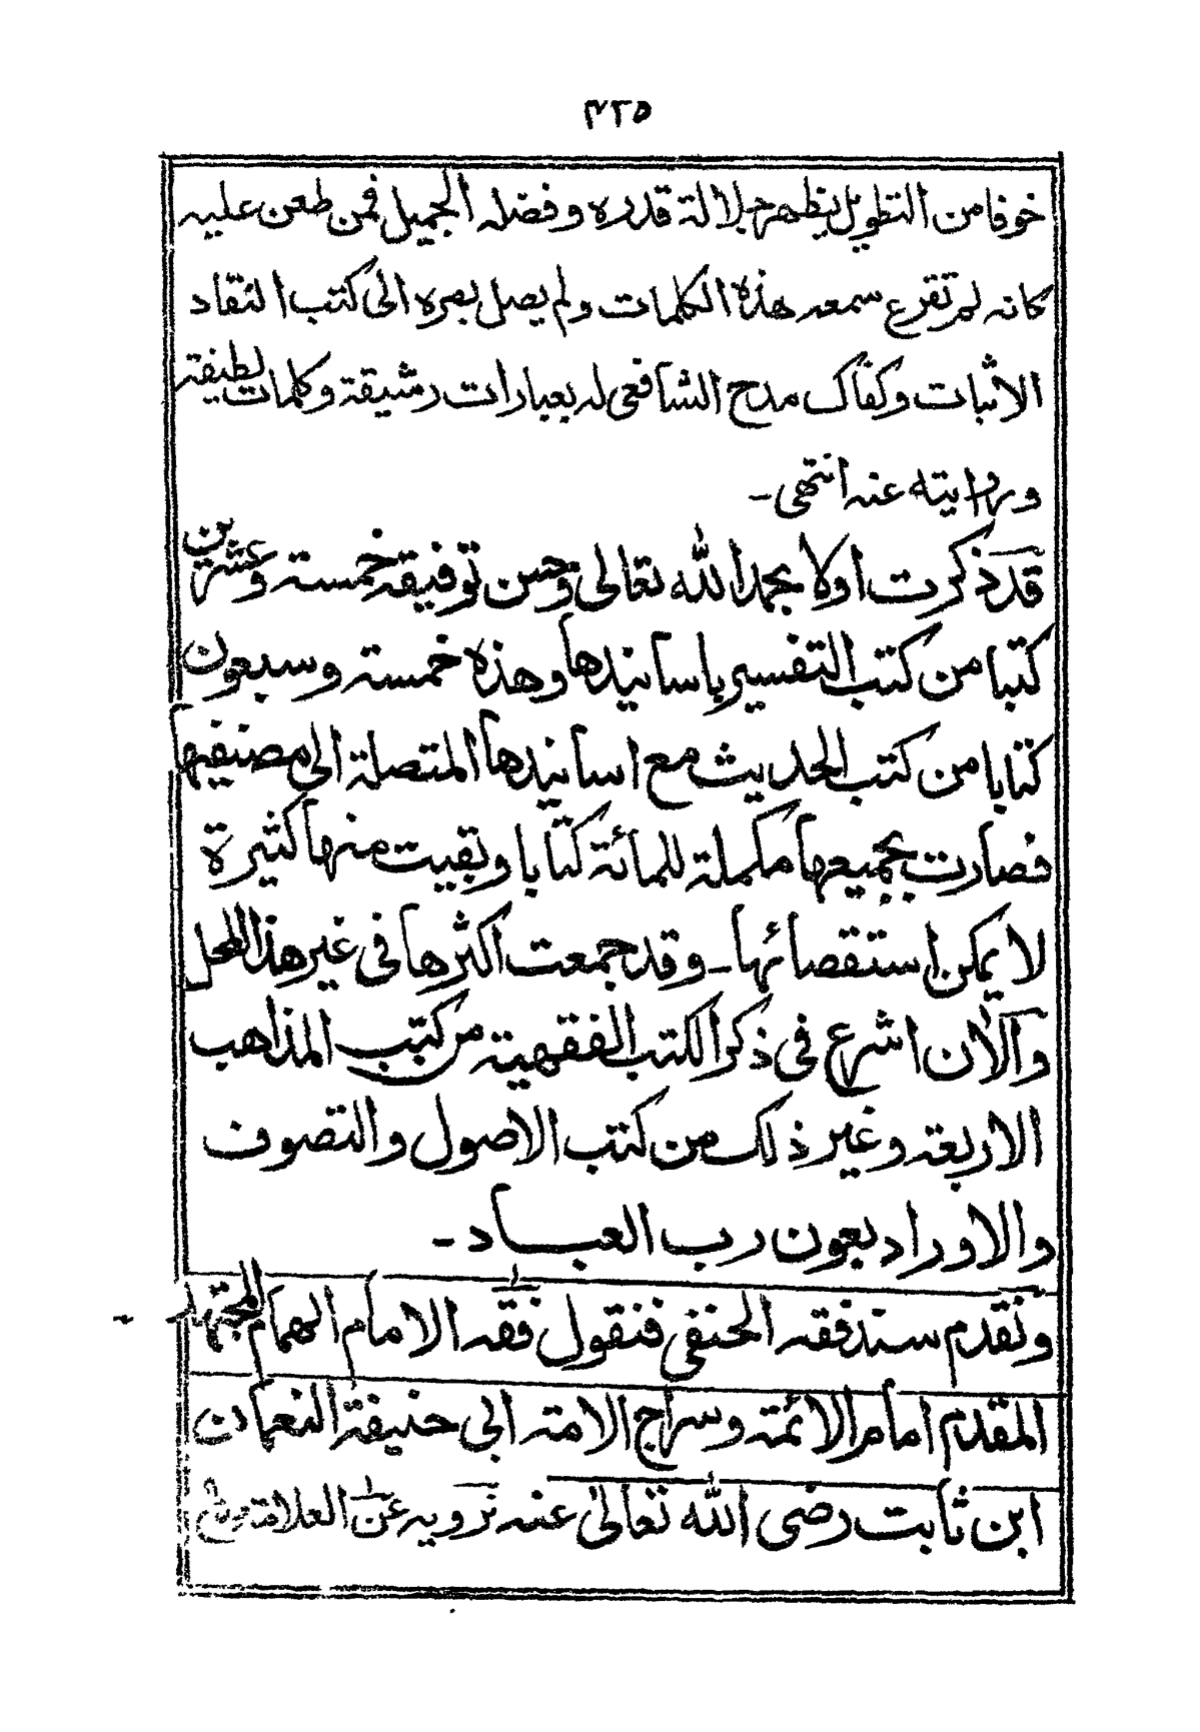 ٤٢٥
خوفا من التطويل يظهر جلالة قدره وفضله الجميل فمن طعن عليه
كانه لم تقرع سمعه هذه الكلمات ولم يصل بصره الى كتب النقاد
الاثبات وكفاك مدح الشافعى له بعبارات رشيقة وكلمات لطيفة
وروايته عنه انتهى ـ
قد ذكرت اولا بحمد الله تعالى وحسن توفيقه خمسة وعشرين
كتبا من كتب التفسير باسانيدها وهذه خمسة وسبعون
كتابا من كتب الحديث مع اسانيدها المتصلة الى مصنفيها
فصارت بجميعها مكملة للمائة كتابا وبقيت منها كثيرة
لا يمكن استقصائها ـ وقد جمعت اكثرها فى غير هذا المحل
والآن اشرع فى ذكر الكتب الفقهية من كتب المذاهب
الاربعة وغير ذلك من كتب الاصول والتصوف
والاوراد بعون رب العباد ـ
ونقدم سند فقه الحنفى فنقول فقه الامام الهمام المجتهد
المقدم امام الائمة وسراج الامة ابى حنيفة النعمان
ابن ثابت رضى الله تعالى عنه نرويه عن العلامة